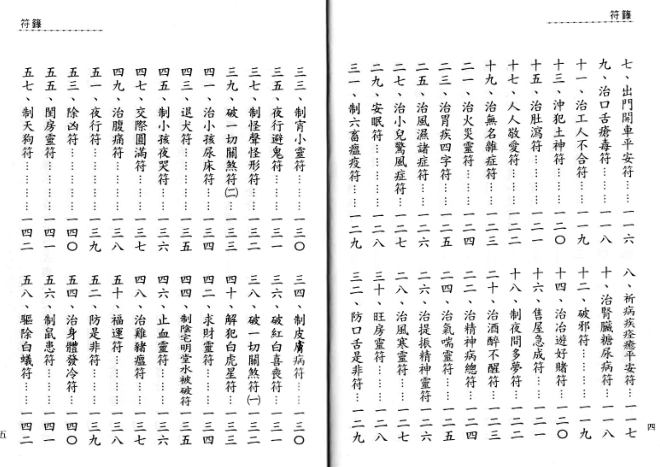 符籙
七、出門開車平安符……一一六
八、祈病疾痊癒平安符…一一七
九、治口舌瘡毒符……一一八
十、治腎臟糖尿病符…一一八
十一、治工人不合符……一一九
十二、破邪符……一一九
十三、沖犯土神符……一二〇
十四、治冶遊好賭符……一二〇
十五、治肚瀉符……一二一
十六、售屋急成符……一二一
十七、人人敬愛符……一二二
十八、制夜間多夢符……一二二
十九、治無名雜症符……一二三
二十、治酒醉不醒符……一二三
二一、治火災靈符……一二四
二二、治精神病總符……一二四
二三、治胃疾四字符……一二五
二四、治氣喘靈符……一二五
二五、治風濕諸症符……一二六
二六、治提振精神靈符…一二六
二七、治小兒驚風症符…一二七
二八、治風寒靈符……一二七
二九、安眠符……一二八
三十、旺房靈符……一二八
三一、制六畜瘟疫符……一二九
三二、防口舌是非符……一二九
四
符籙
三三、制宵小靈符……一三〇
三四、制皮膚病符……一三〇
三五、夜行避鬼符……一三一
三六、破紅白喜喪符……一三一
三七、制怪聲怪形符……一三二
三八、破一切關煞符㈠…一三二
三九、破一切關煞符㈡…一三三
四十、解犯白虎星符……一三三
四一、治小孩尿床符……一三四
四二、求財靈符……一三四
四三、退犬符……一三五
四四、制陰宅明堂水被破符一三五
四五、制小孩夜哭符……一三六
四六、止血靈符……一三六
四七、交際圓滿符……一三七
四八、治雞豬瘟符……一三七
四九、治腹痛符……一三八
五十、福運符……一三八
五一、夜行符……一三九
五二、防是非符……一三九
五三、除凶符……一四〇
五四、治身體發冷符……一四〇
五五、閨房靈符……一四一
五六、制鼠患符……一四一
五七、制天狗符……一四二
五八、驅除白蟻符……一四二
五